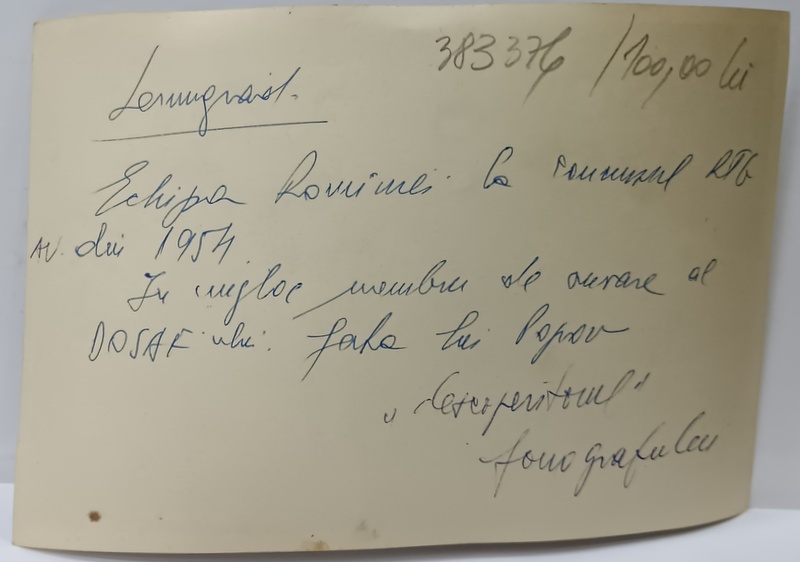 383376 /100,00 lei
Leningrad.
Echipa României la concursul RTG
AV. din 1954
În mijloc membru de onoare al
DOSAF ului. fata lui Popov
„descoperitorul”
fonografului